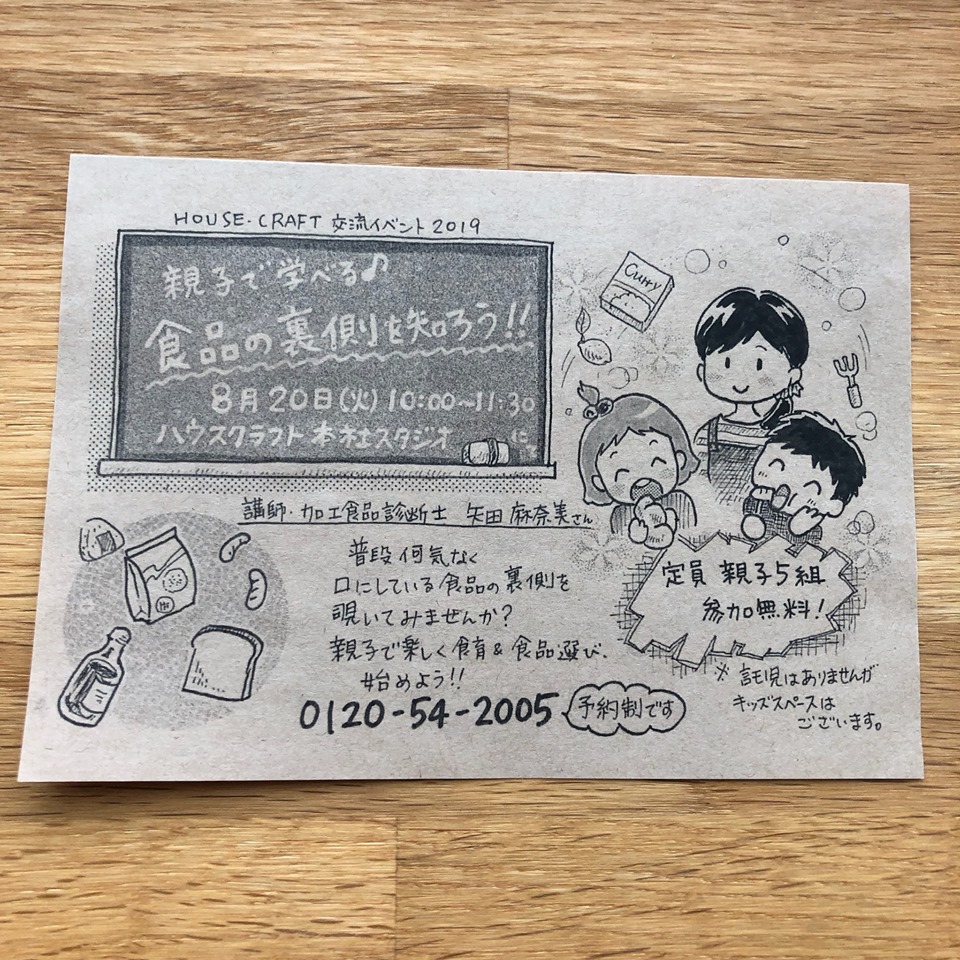 HOUSE-CRAFT 交流イベント 2019
親子で学べる♪
食品の裏側を知ろう!!
8月20日(火) 10:00~11:30
ハウスクラフト 本社スタジオ にて
講師・加工食品診断士 矢田 麻奈美さん
普段 何気なく
口にしている食品の裏側を
覗いてみませんか?
親子で楽しく食育&食品選び、
始めよう!!
0120-54-2005
予約制です
Curry
定員 親子5組
参加無料!
※ 託児はありませんが
キッズスペースは
ございます。